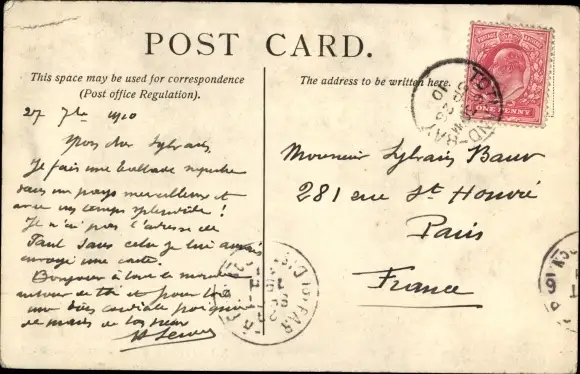 POST CARD.
This space may be used for correspondence
(Post office Regulation).
The address to be written here.
POSTAGE
ONE PENNY
TOTLAND-BAY
27 7bre 1910
Mon cher Sylvain,
Je fais une ballade superbe
dans un pays merveilleux et
avec un temps splendide !
Je n'ai pas l'adresse de
Paul sans cela je lui aurais
envoyé une carte.
Bonjour à tout le monde
autour de toi et pour toi
une très cordiale poignée
de mains de ton vieux
Monsieur Sylvain Baur
281 rue St Honoré
Paris
France